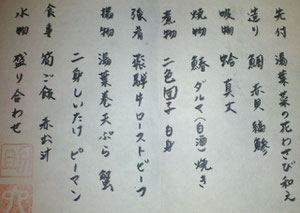 先付 湯葉菜の花わさび和え
造り 鯛 赤貝 縞鯵
吸物 蛤真丈
焼物 鰆ダルマ(白酒)焼き
煮物 二色団子 白身
強肴 飛騨牛ローストビーフ
揚物 湯葉巻天ぷら 蟹
二身しいたけ ピーマン
食事 筍ご飯 赤出汁
水物 盛り合わせ